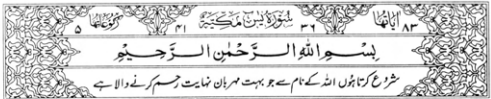 اٰیَاتُهَا ٨٣ ٣٦ سُوْرَةُ يٰسٓ مَكِّيَّةٌ ٤١ رُكُوْعَاتُهَا ٥
بِسْمِ اللّٰهِ الرَّحْمٰنِ الرَّحِيْمِ
شروع کرتا ہوں اللہ کے نام سے جو بہت مہربان نہایت رحم کرنے والا ہے